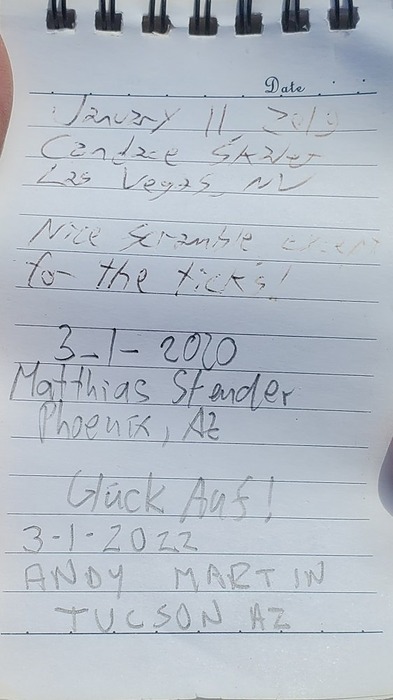 Date
January 11, 2019
Candace Skalet
Las Vegas, NV
Nice scramble except
for the ticks!
3-1-2020
Matthias Stender
Phoenix, AZ
Glück Auf!
3-1-2022
ANDY MARTIN
TUCSON AZ